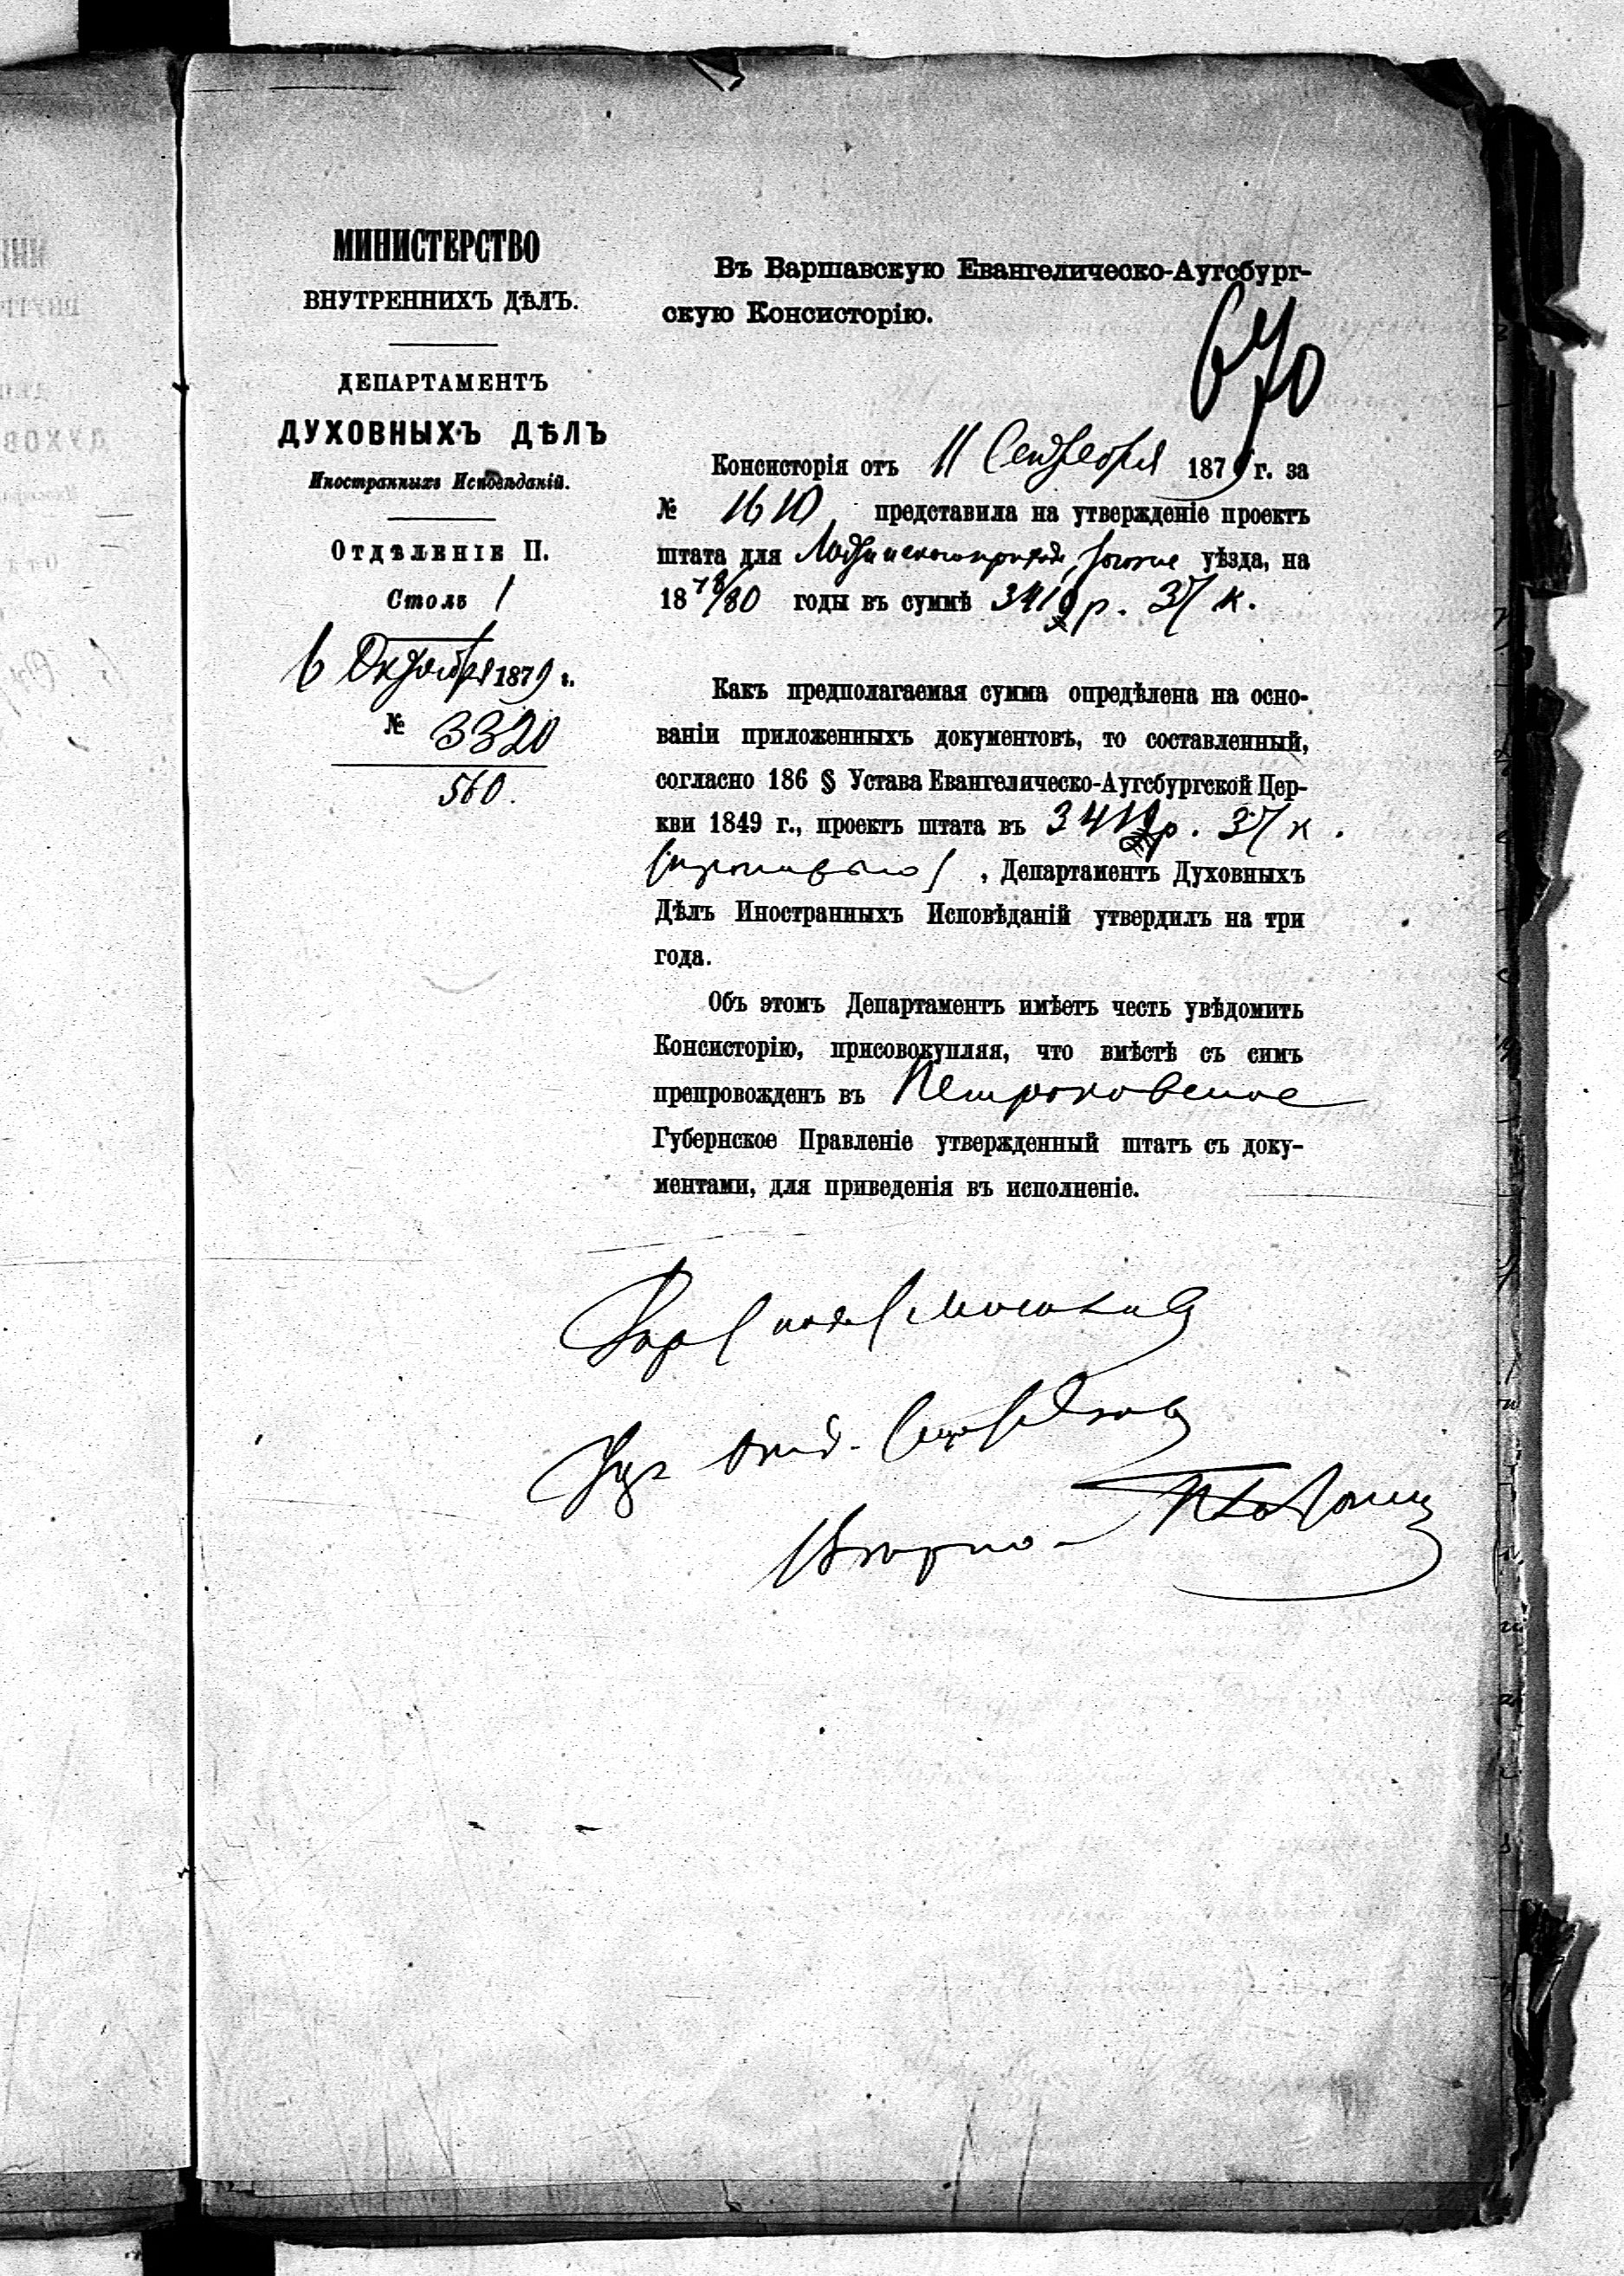 МИНИСТЕРСТВО
ВНУТРЕННИХЪ ДѢЛЪ.
ДЕПАРТАМЕНТЪ
ДУХОВНЫХЪ ДѢЛЪ
Иностранныхъ Исповѣданій.
Отдѣленіе II.
Столъ 1
6 Октября 1879 г.
№ 3320
560.
Въ Варшавскую Евангелическо-Аугсбург-
скую Консисторію.
670
Консисторія отъ 11 Сентября 1879 г. за
№ 1610 представила на утвержденіе проектъ
штата для уѣзда, на
18 78/80 годы въ суммѣ 3419 р. 37 к.
Какъ предполагаемая сумма опредѣлена на осно-
ваніи приложенныхъ документовъ, то составленный,
согласно 186 § Устава Евангелическо-Аугсбургской Цер-
кви 1849 г., проектъ штата въ 3419 р. 37 к.
, Департаментъ Духовныхъ
Дѣлъ Иностранныхъ Исповѣданій утвердилъ на три
года.
Объ этомъ Департаментъ имѣетъ честь увѣдомить
Консисторію, присовокупляя, что вмѣстѣ съ симъ
препровожденъ въ Петроковское
Губернское Правленіе утвержденный штатъ съ доку-
ментами, для приведенія въ исполненіе.